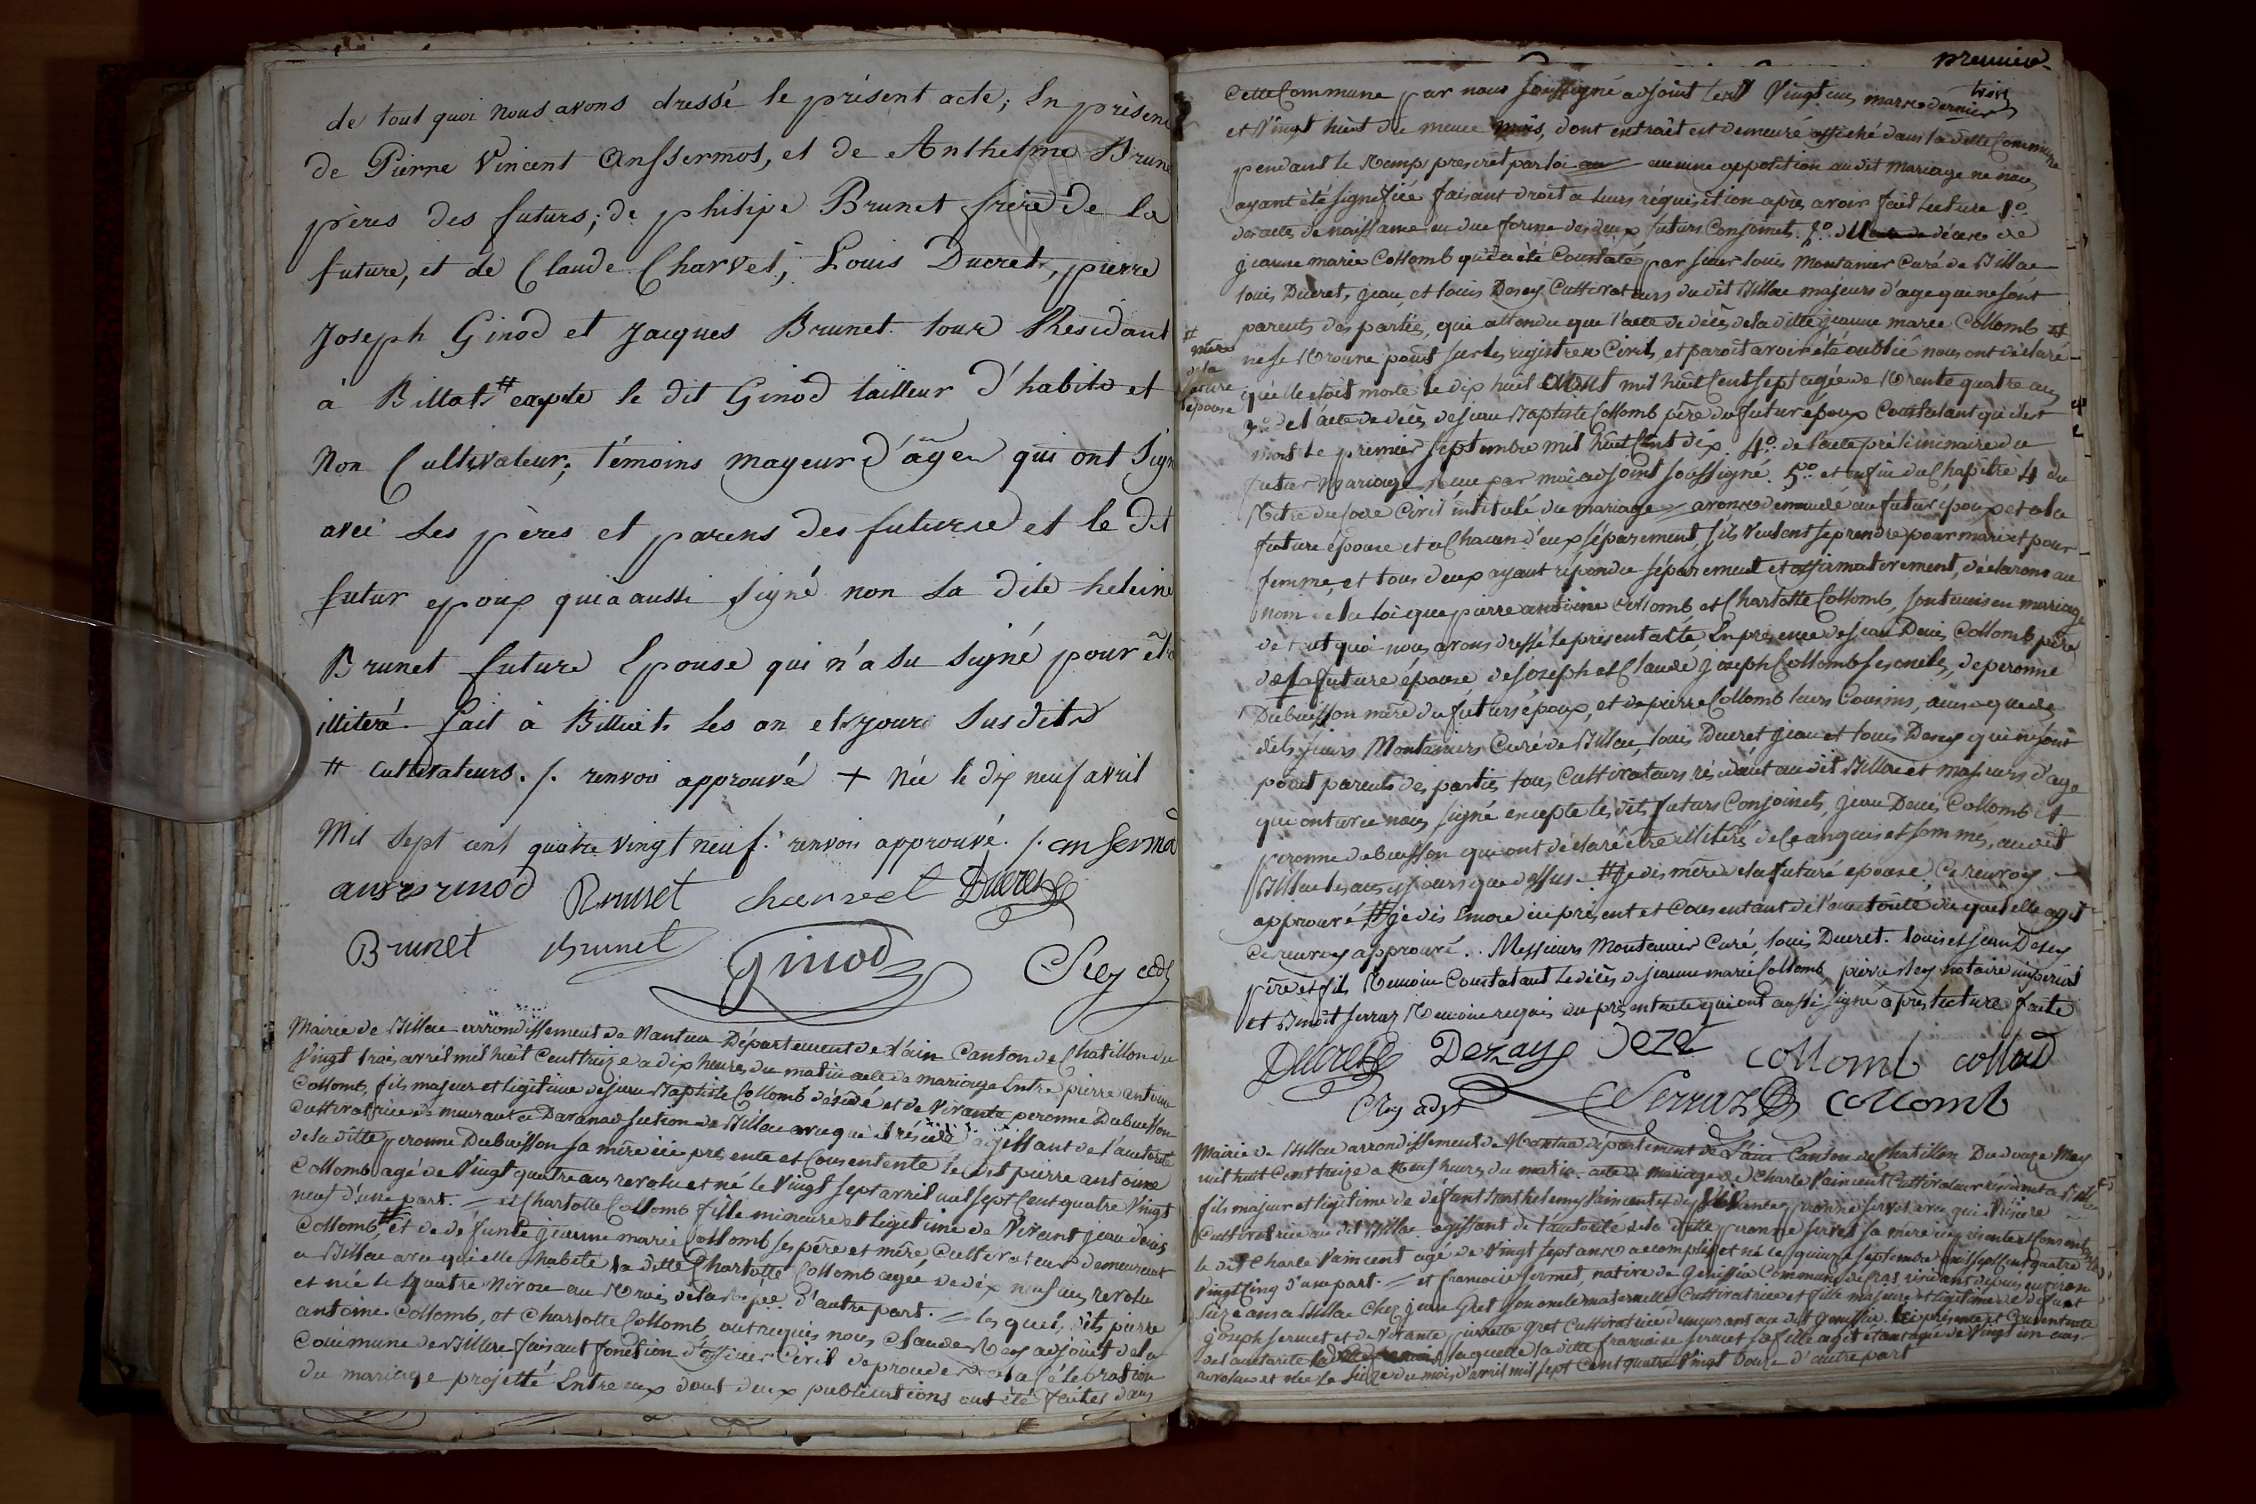 de tout quoi nous avons dressé le présent acte, En présen
de Pierre Vincent Anssermos, et de Anthelme Brune
pères des futurs; de philipe Brunet frère de la
future, et de Claude Charvet, Louis Ducret, pierre
Joseph Ginod et Jacques Brunet tour Residant
à Billats # expte le dit Ginod tailleur d'habits et
Non Cultivateur, témoins mayeur d'âge qui ont Sign
avec les pères et parens des futurs et le dit
futur epoux qui a aussi signé non la dite heleine
Brunet future Epouse qui n'a su signé pour êtr
illiteré. fait à Billiat les an et jour susdits
# Cultivateurs. /. renvoi approuvé + Née le dix neuf avril
Mil Sept cent quatre vingt neuf. renvoi approuvé. /. ansermo
ansermod Brunet charvet Ducret
Brunet Brunet Ginod Rey adj
Mairie de Billac arrondissement de Nantua Département de l'ain Canton de Chatillon du
Vingt trois avril mil huit Cent treize a dix heures du matin acte de mariage Entre pierre antoine
Collomb, fils majeur et légitime de jean Baptiste Collomb décédé et de Vivante peronne Dubuisson
Cultivatrice demeurant a Davanod section de Billac avec qui il réside agissant de l'autorité
de la ditte peronne Dubuisson sa mère ici présente et Consentente le dit pierre antoine
Collomb agé de Vingt quatre ans revolu et né le Vingt sept avril mil sept Cent quatre Vingt
neuf d'une part. = et Charlotte Collomb fille mineure et légitime de Vivant jean denis
Collomb # et de défunte jeanne marie Collomb ses père et mère Cultivateurs demeurant
a Billac avec qui elle habite la ditte Charlotte Collomb agée de dix neuf ans revolu
et née le quatre Nivose an trois de la Rep. d'autre part. = les quels dits pierre
antoine Collomb, et Charlotte Collomb ont requis nous Claude Rey adjoint de la
Commune de Billac faisant fonction d'officier Civil de proceder a la Célébration
du mariage projetté Entre eux dont deux publications ont été faites dans
premier
cette Commune par nous soussigné adjoint les Vingt un mars dernier
trois
et Vingt huit de meme mois, dont extrait est demeuré affiché dans la ditte Commune
pendant le temps prescrit par loi aucune opposition au dit Mariage ne nous
ayant été signifiée faisant droit a leurs réquisition après avoir fait lecture 1.o
des actes de naissance en due forme des deux futurs Conjoints. 2.o du décès de
jeanne marie Collomb qui a été Constaté par sieur louis Montanier Curé de Billac
louis Ducret, jean et louis Desay Cultivateurs du dit Billac majeurs d'age qui ne sont
parents des parties, qui attendu que l'acte de décès de la ditte jeanne marie Collomb #
ne se trouve point sur les registres Civil, et paroit avoir été oublié nous ont déclaré
#
mère
de la
future
épouse
qu'elle etoit morte le dix huit aout mil huit Cent sept agée de trente quatre ans
3.o de l'acte de décès de jean Baptiste Collomb père du futur époux Constatant qu'il est
mort le premier septembre mil huit Cent dix 4.o de l'acte préliminaire du
futur Mariage reçu par moi adjoint soussigné. 5.o et enfin du Chapitre 4 du
titre du Code Civil intitulé du mariage = avons demandé au futur époux et a la
future épouse et a Chacun d'eux séparement, s'ils veulent se prendre pour mari et pour
femme, et tous deux ayant répondu séparement et affirmativement, déclarons au
nom de la loi que pierre antoine Collomb et Charlotte Collomb, sont unis en mariage
de tout quoi nous avons dressé le présent acte, En présence de jean Denis Collomb père
de la future épouse, de joseph et Claude joseph Collomb ses oncles, de peronne
Dubuisson mère du futur époux, et de pierre Collomb leurs Cousins, ainsi que des
dits sieurs Montaniers Curé de Billac, louis Ducret jean et louis Desay qui ne sont
point parents des parties tous Cultivateurs résidant au dit Billac et majeurs d'age
qui ont avec nous signé excepté les dits futurs Conjoints, jean Denis Collomb et
peronne dubuisson qui ont déclaré être illitéré de ce enquis et sommés, au dit
Billac les ans et jours que dessus # je dis mère de la future epouse, Ce renvoy
approuvé # je dis Encore ici présent et Consentant de l'autorité du quel elle agit
Ce renvoy approuvé. Messieurs Montanier Curé, louis Ducret. louis et jean Desay
père et fils temoin Constatant le décès de jeanne marie Collomb pierre Rey notaire impérial
et Benoit serraz temoin requis au présent acte qui ont aussi signé après lecture faite
Ducret Dezay Dezet Collomb Collomb
C Rey adjt Serraz Collomb
Mairie de Billac arrondissement de Nantua département de L'ain Canton de Chatillon Du douze May
mil huit Cent treize a Neuf heures du matin acte de mariage de Charle Vaincent Cultivateur résident a Billac
fils majeur et légitime de défunt Barthelemy Vaincent et de Vivante peronne servet avec qui il réside
Cultivatrice au dit Billac agissant de l'autorité de la ditte peronne servet sa mère ici présente et Consentente
le dit Charle Vaincent agé de Vingt sept ans accomplis et né le quinze septembre mil sept Cent quatre
Vingt Cinq d'une part. = et francoise sermet, native de Genissia Commune de residant depuis environ
seize ans a Billac Chez jean Gret son oncle maternelle Cultivatrice et fille majeure et légitime de défunt
joseph sermet et de Vivante pierrette Gret Cultivatrice demeurant au dit Genissia ici présente et Consentente
de l'autorité de laquelle la ditte francoise sermet sa fille agit etant agée de Vingt un ans
revolus et née le seize du mois d'avril mil sept Cent quatre Vingt douze d'autre part